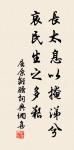 長太息以掩涕兮
哀民生之多艱
屈原離騷詞典網